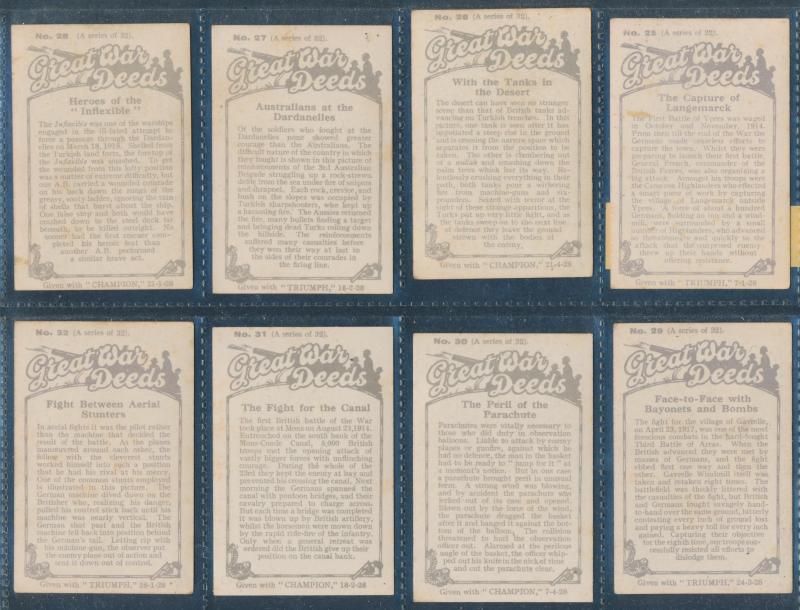 No. 26 (A series of 32).
Great War
Deeds
Heroes of the
"Inflexible"
The Inflexible was one of the warships
engaged in the ill-fated attempt to
force a passage through the Dardan-
elles on March 18, 1915. Shelled from
the Turkish land forts, the foretop of
the Inflexible was smashed. To get
the wounded from this lofty position
was a matter of extreme difficulty, but
one A.B. carried a wounded comrade
on his back down the rungs of the
greasy, sooty ladder, ignoring the rain
of shells that burst about the ship.
One false step and both would have
crashed down to the steel deck far
beneath, to be killed outright. No
sooner had the first rescuer com-
pleted his heroic feat than
another A.B. performed
a similar brave act.
Given with "CHAMPION,"
No. 27 (A series of 32).
Great War
Deeds
Australians at the
Dardanelles
Of the soldiers who fought at the
Dardanelles none showed greater
courage than the Australians. The
difficult nature of the country in which
they fought is shown in this picture of
reinforcements of the 3rd Australian
Brigade struggling up a rock-strewn
defile from the sea under fire of snipers
and shrapnel. Each rock, crevice, and
bush on the slopes was occupied by
Turkish sharpshooters, who kept up
a harassing fire. The Aussies returned
the fire, many bullets finding a target
and bringing dead Turks rolling down
the hillside. The reinforcements
suffered many casualties before
they won their way at last to
the sides of their comrades in
the firing line.
Given with "TRIUMPH," 18-2-28
No. 28 (A series of 32).
Great War
Deeds
With the Tanks in
the Desert
The desert can have seen no stranger
scene than that of British tanks ad-
vancing on Turkish trenches. In this
picture, one tank is seen after it has
negotiated a steep rise in the ground
and is crossing the narrow space which
separates it from the position to be
taken. The other is clambering out
of a nullah and smashing down the
palm trees which bar its way. Re-
lentlessly crushing everything in their
path, both tanks pour a withering
fire from machine-guns and six-
pounders. Seized with terror at the
sight of these strange apparitions, the
Turks put up very little fight, and as
the tanks sweep on to the next line
of defence they leave the ground
strewn with the bodies of
the enemy.
Given with "CHAMPION," 21-4-28
No. 25 (A series of 32).
Great War
Deeds
The Capture of
Langemarck
The First Battle of Ypres was waged
in October and November, 1914.
From then till the end of the War the
Germans made ceaseless efforts to
capture the town. Whilst they were
preparing to launch their first attack,
General French, commander of the
British Forces, was also organising a
big attack. Amongst his troops were
the Cameron Highlanders who effected
a smart piece of work by capturing
the village of Langemarck outside
Ypres. A force of about a hundred
Germans, holding an inn and a wind-
mill, were surrounded by a small
number of Highlanders, who advanced
so threateningly and quickly to the
attack that the surprised enemy
threw up their hands without
offering resistance.
Given with "TRIUMPH," 7-1-28
No. 32 (A series of 32).
Great War
Deeds
Fight Between Aerial
Stunters
In aerial fights it was the pilot rather
than the machine that decided the
result of the battle. As the planes
manœuvred around each other, the
airman with the cleverest stunts
worked himself into such a position
that he had his rival at his mercy.
One of the common stunts employed
is illustrated in this picture. The
German machine dived down on the
Britisher who, realising his danger,
pulled his control stick back until his
machine was nearly vertical. The
German shot past and the British
machine fell back into position behind
the German's tail. Letting rip with
his machine-gun, the observer put
the enemy plane out of action and
sent it down out of control.
Given with "TRIUMPH," 28-1-28
No. 31 (A series of 32).
Great War
Deeds
The Fight for the Canal
The first British battle of the War
took place at Mons on August 23, 1914.
Entrenched on the south bank of the
Mons-Conde Canal, 8,000 British
troops met the opening attack of
vastly bigger forces with unflinching
courage. During the whole of the
23rd they kept the enemy at bay and
prevented his crossing the canal. Next
morning the Germans spanned the
canal with pontoon bridges, and their
cavalry prepared to charge across.
But each time a bridge was completed
it was blown up by British artillery,
whilst the horsemen were mown down
by the rapid rifle-fire of the infantry.
Only when a general retreat was
ordered did the British give up their
position on the canal bank.
Given with "CHAMPION," 18-2-28
No. 30 (A series of 32).
Great War
Deeds
The Peril of the
Parachute
Parachutes were vitally necessary to
those who did duty in observation
balloons. Liable to attack by enemy
planes or gunfire, against which he
had no defence, the man in the basket
had to be ready to "jump for it" at
a moment's notice. But in one case
a parachute brought peril in unusual
form. A strong wind was blowing,
and by accident the parachute was
jerked out of its case and opened.
Blown out by the force of the wind,
the parachute dragged the basket
after it and banged it against the bot-
tom of the balloon. The collision
threatened to hurl the observation
officer out. Alarmed at the perilous
angle of the basket, the officer whip-
ped out his knife in the nick of time
and cut the parachute clear.
Given with "CHAMPION," 7-4-28
No. 29 (A series of 32).
Great War
Deeds
Face-to-Face with
Bayonets and Bombs
The fight for the village of Gavrelle,
on April 23, 1917, was one of the most
ferocious combats in the hard-fought
Third Battle of Arras. When the
British advanced they were met by
masses of Germans, and the fight
ebbed first one way and then the
other. Gavrelle Windmill itself was
taken and retaken eight times. The
battlefield was thickly littered with
the casualties of the fight, but British
and Germans fought savagely hand-
to-hand over the same ground, bitterly
contesting every inch of ground lost
and paying a heavy toll for every inch
gained. Capturing their objective
for the eighth time, our troops suc-
cessfully resisted all efforts to
dislodge them.
Given with "TRIUMPH," 24-3-28